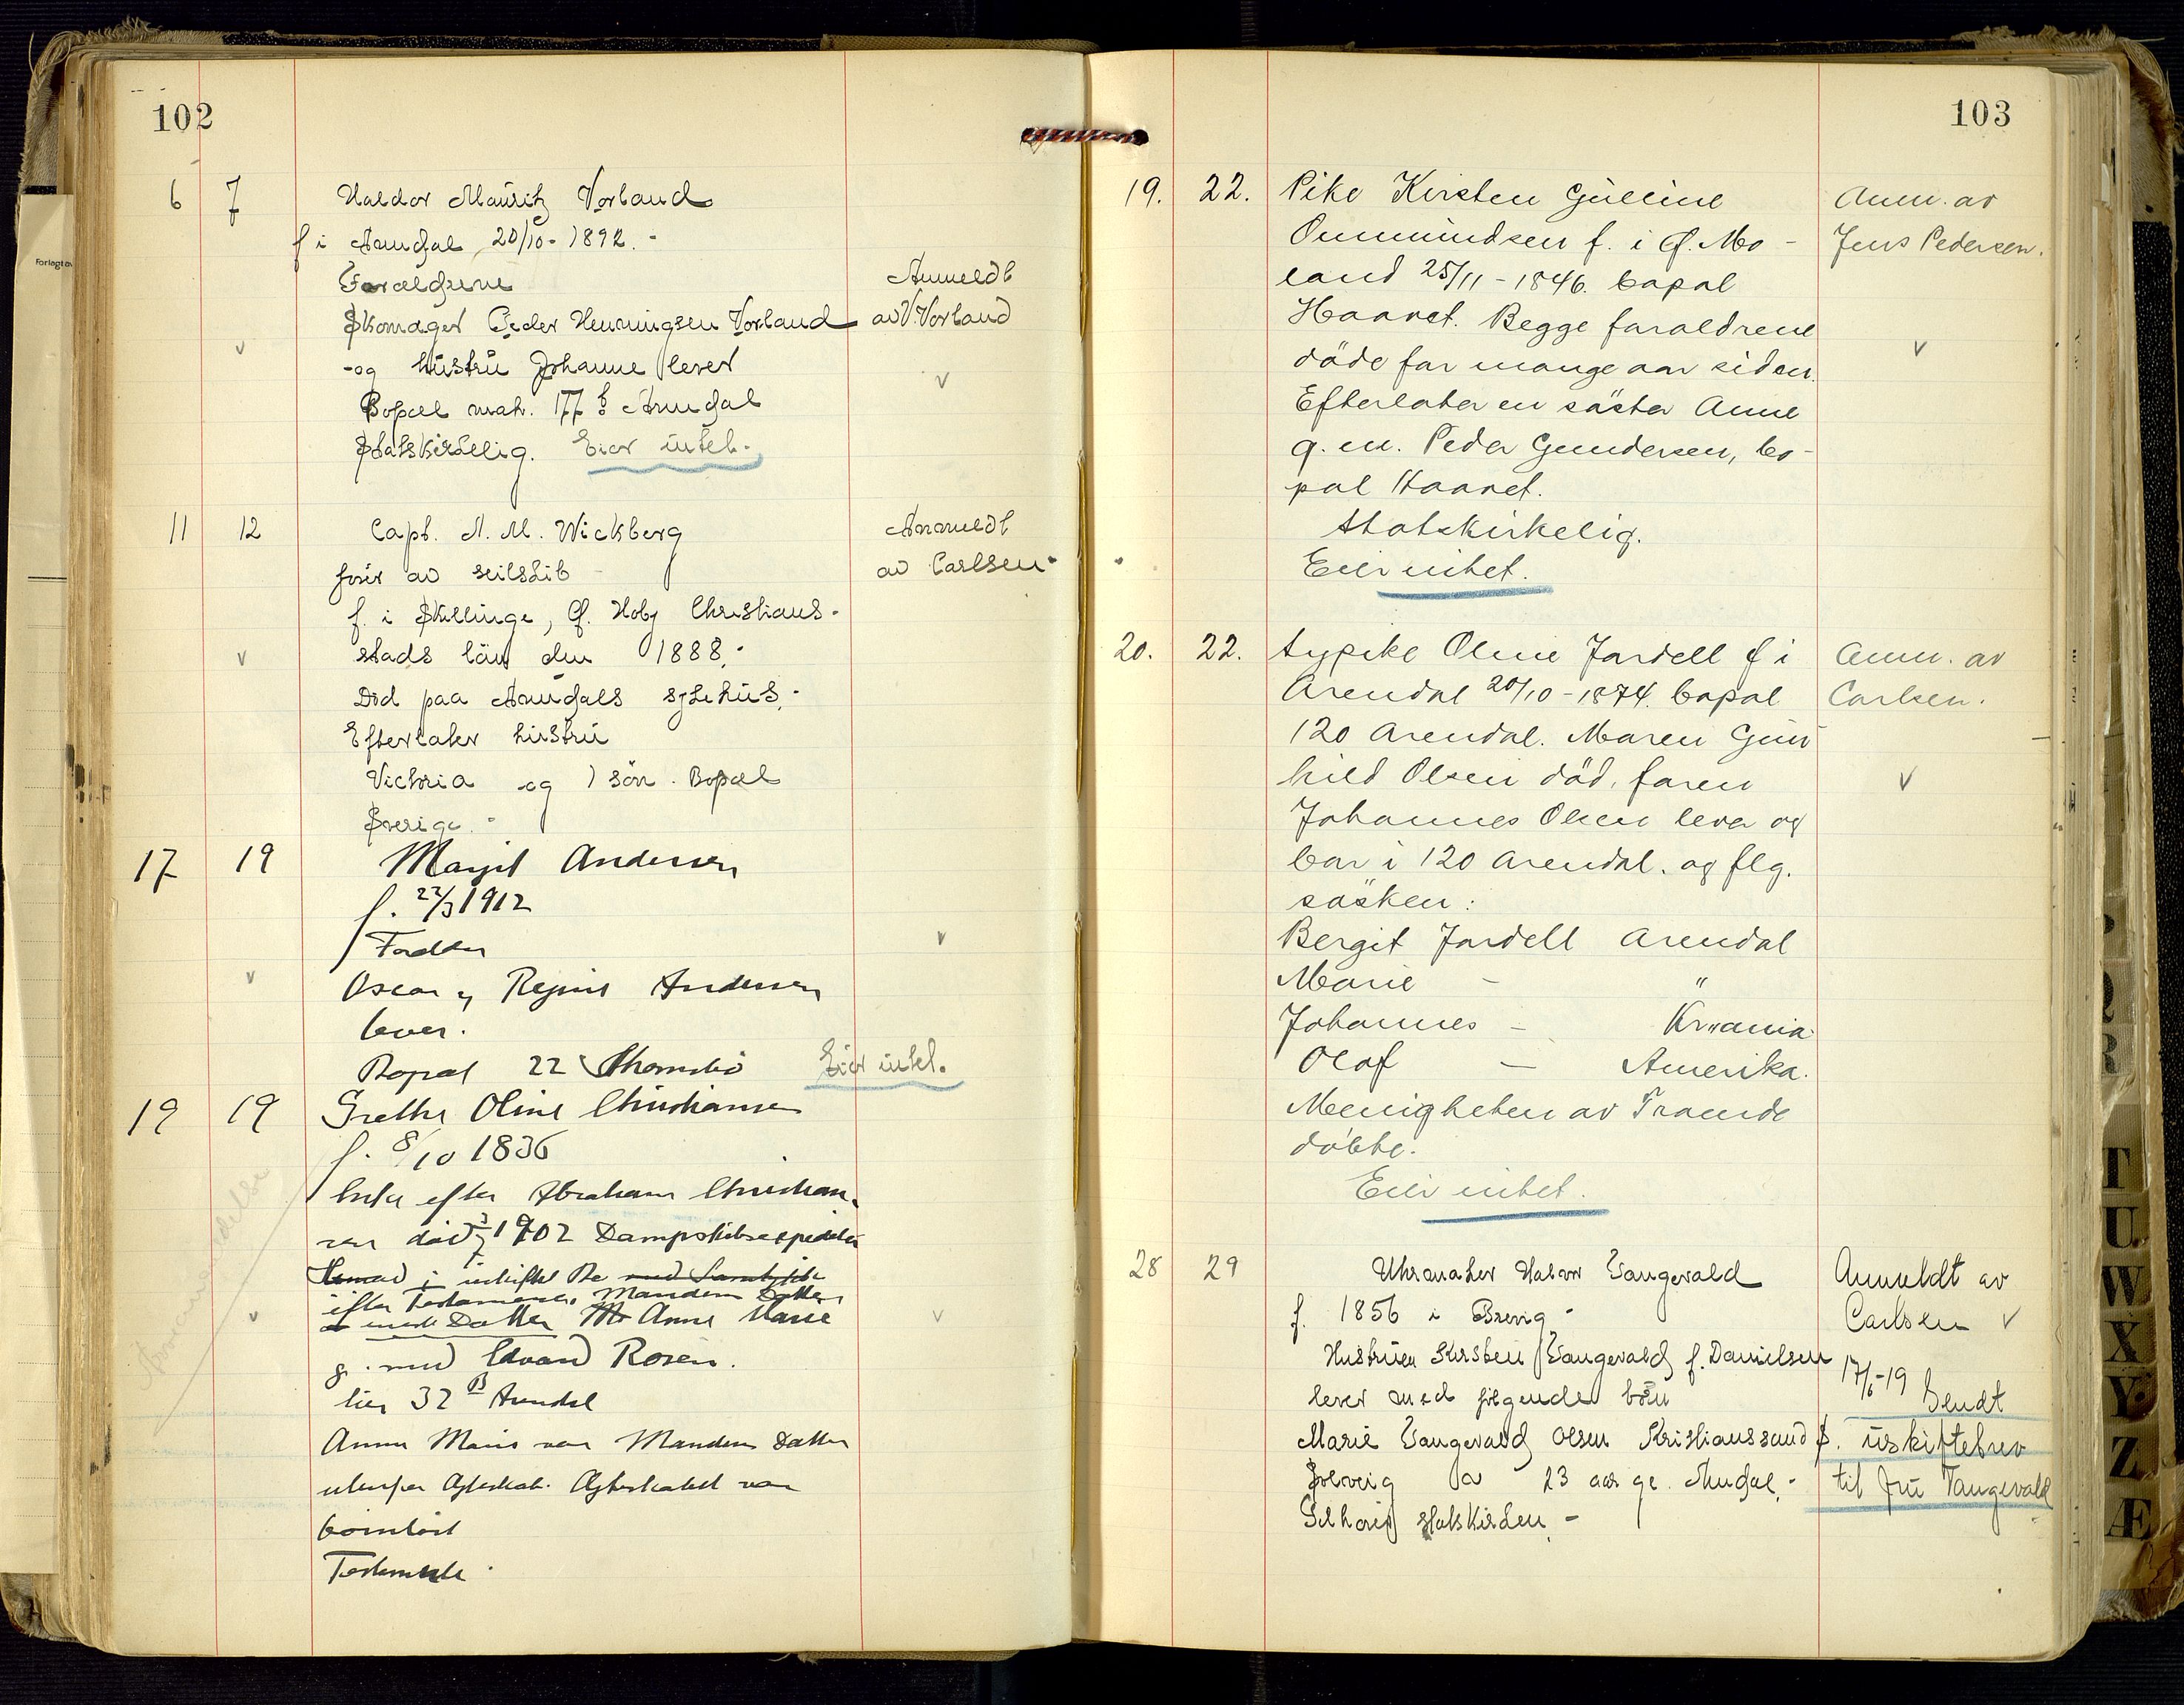 102
6 7 Haldor Mauritz Vorland
f i Arendal 20/10-1892.-
Forældrene
Anmeldt
Skomager Peder Henningsen Vorland
av V. Vorland
og hustru Johanne lever
Bopæl matr. 177 b Arendal
Statskirkelig. Eier intet.
11 12 Capt. N. M. Wickberg
Anmeldt
fører av seilskib
av Carlsen
f. i Skillinge, Ø. Hoby Christians-
stads län den 1888.-
Död paa Arendals sykehus.
Efterlater hustru
Victoria og 1 sön. Bopæl
Sverige.-
17 19 Margit Andersen
f. 22/3 1912
Oscar og Regine Andersen
lever.
Bopæl 22 Eier intet.
19 19 Grethe Oline Christiansen
f. 8/10 1836
Enke efter Abraham Christian-
sen död 1902 Dampskibsexpeditör
i uskiftet Bo med
efter Testamente, Mandens Datter
Datter Anne Marie
g. med Edvard Rosén.
32 B Arendal
Anne Marie var Mandens Datter
utenfor Ægteskab. Ægteskabet var
barnløst
Testamente.
103
19. 22. Pike Kirsten Gulline
Anm. av
Ommundsen f. i Ø. Mo-
Jens Pedersen.
land 25/11-1846. bopæl
Haavet. Begge foraldrene
döde for mange aar siden.
Efterlater en söster Anne
g. m. Peder Gundersen, bo-
pæl Haavet.
Statskirkelig.
Eier intet.
20. 22. Sypike Oline Jardell f i
Anm. av
Arendal 20/10-1874. bopæl
Carlsen.
120 Arendal. Maren Gun
hild Olsen död, faren
Johannes Olsen lever og
bor i 120 Arendal. og flg.
sösken:
Bergit Jardell Arendal
Marie - "
Johannes - Kr"ania
Olaf - Amerika.
Menigheten av Troende
döbte.
Eier intet.
28 29 Uhrmaker Halvor Tangevald
Anmeldt av
f. 1856 i Brevig -
Carlsen
Hustruen Kirsten Tangevald f. Danielsen
17/6-19
lever med følgende börn
Sendt
Marie Tangevald Olsen Kristianssand S.
uskiftebrev
Solveig 23 aar Arendal.-
til fru Tangevald
Tilhørig statskirken.-